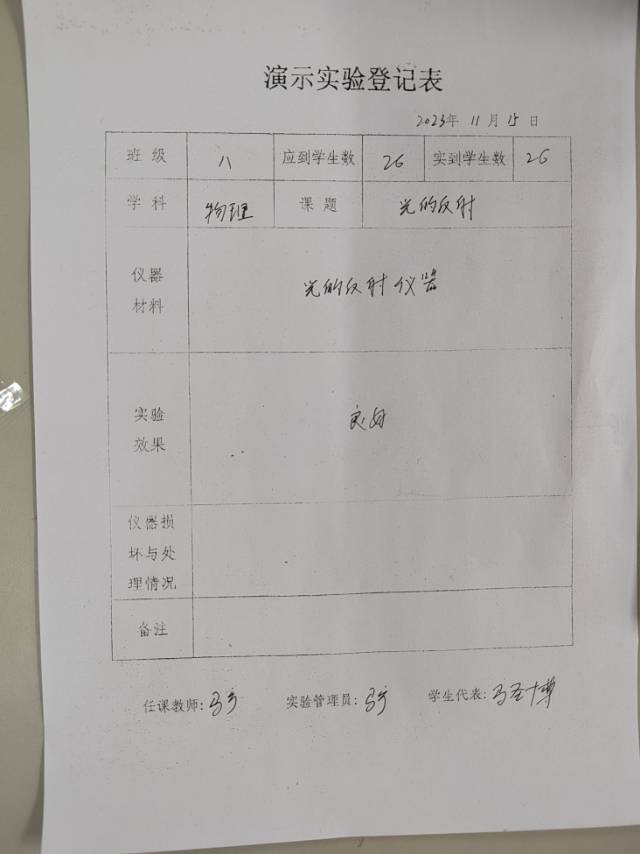 演示实验登记表
2023年 11月 15日
班级 八 应到学生数 26 实到学生数 26
学科 物理 课题 光的反射
仪器
材料
光的反射仪器
实验
效果
良好
仪器损
坏与处
理情况
备注
任课教师: 实验管理员: 学生代表: 马